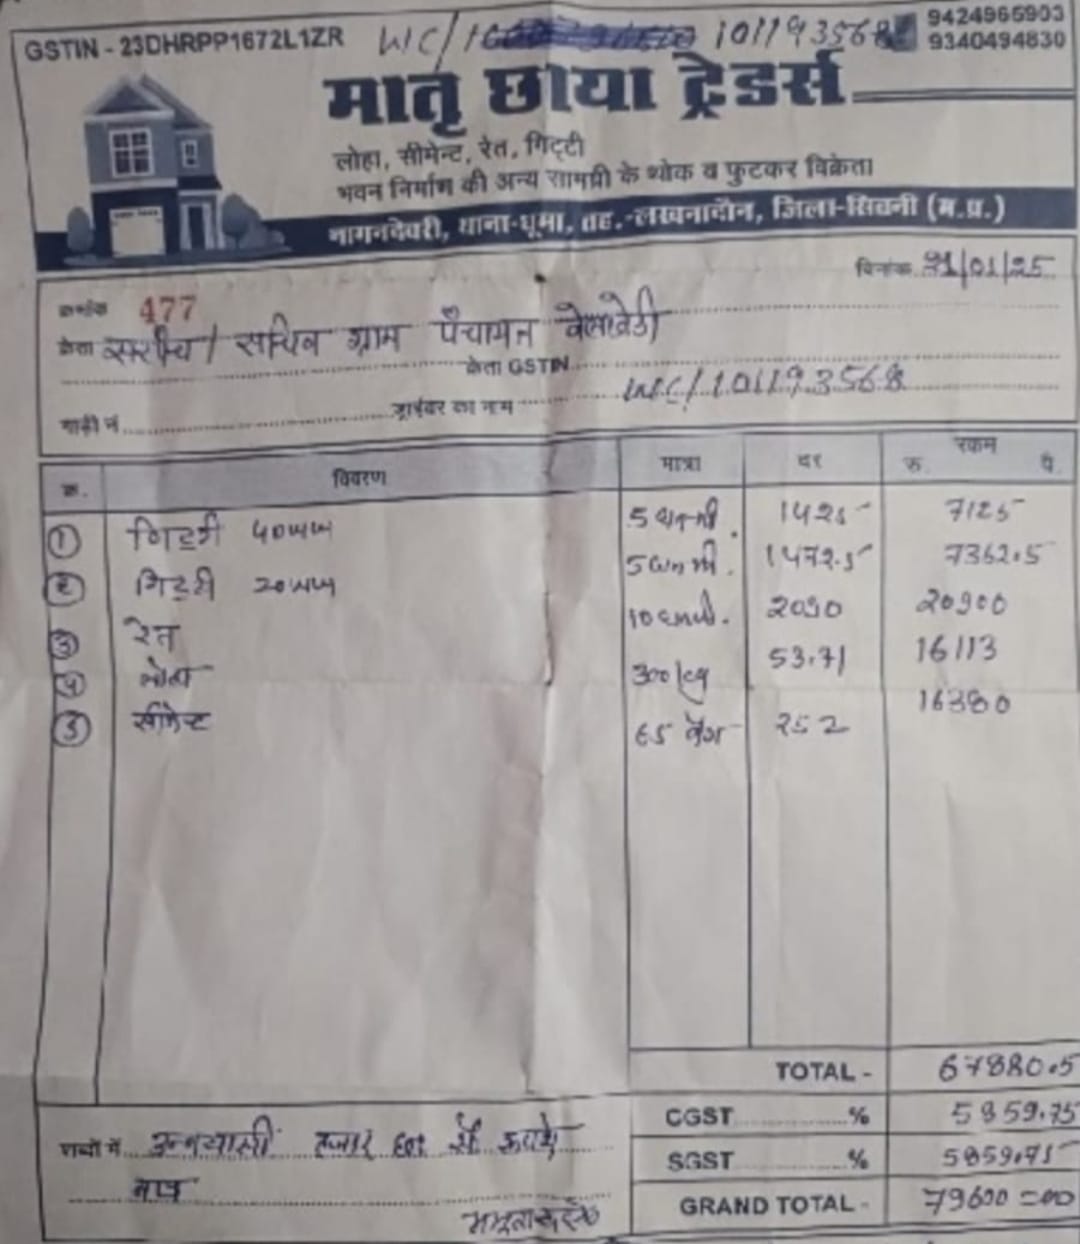 GSTIN - 23DHRPP1672L1ZR
WC/ 101193568
9424965903
9340494830
मातृ छाया ट्रेडर्स
लोहा, सीमेन्ट, रेत, गिट्टी
भवन निर्माण की अन्य सामग्री के थोक व फुटकर विक्रेता
नागनदेवरी, थाना-धूमा, तह.-लखनादौन, जिला-सिवनी (म.प्र.)
दिनांक 21/01/25
क्रमांक 477
क्रेता सरपंच / सचिव ग्राम पंचायत
क्रेता GSTIN
WC/101193568
गाड़ी नं. ड्राईवर का नाम
क्र. विवरण मात्रा दर रकम
रु. पै.
① गिट्टी 40mm 5 घनमी. 1425 7125
② गिट्टी 20mm 5 घनमी. 1472.5 7362.5
③ रेत 10 घनमी. 2090 20900
④ लोहा 300 kg 53.71 16113
⑤ सीमेन्ट 65 बैग 252 16380
TOTAL - 67880.5
CGST % 5859.75
SGST % 5859.75
GRAND TOTAL - 79600=00
शब्दों में उन्नयासी हजार छः सौ रूपये
मात्र